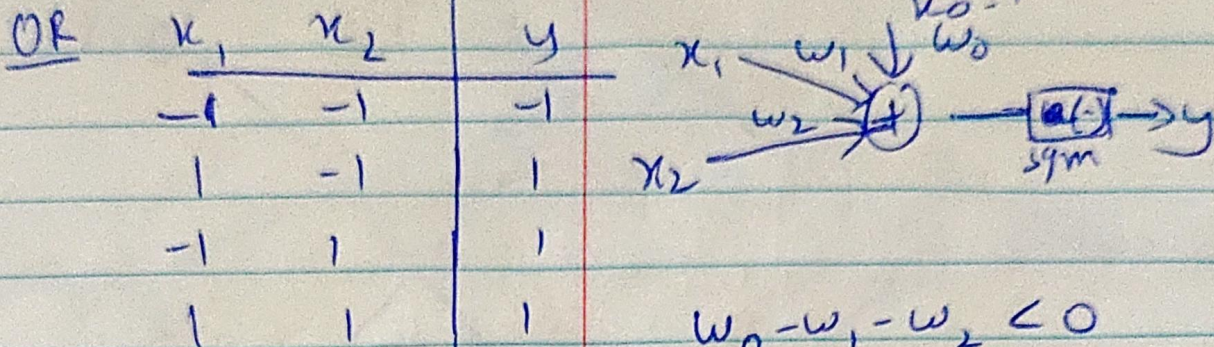 OR x₁ x₂ y
-1 -1 -1
1 -1 1
-1 1 1
1 1 1
x₁ w₁ w₀
w₂ + (·) y
x₂ sgm
w₀ - w₁ - w₂ < 0